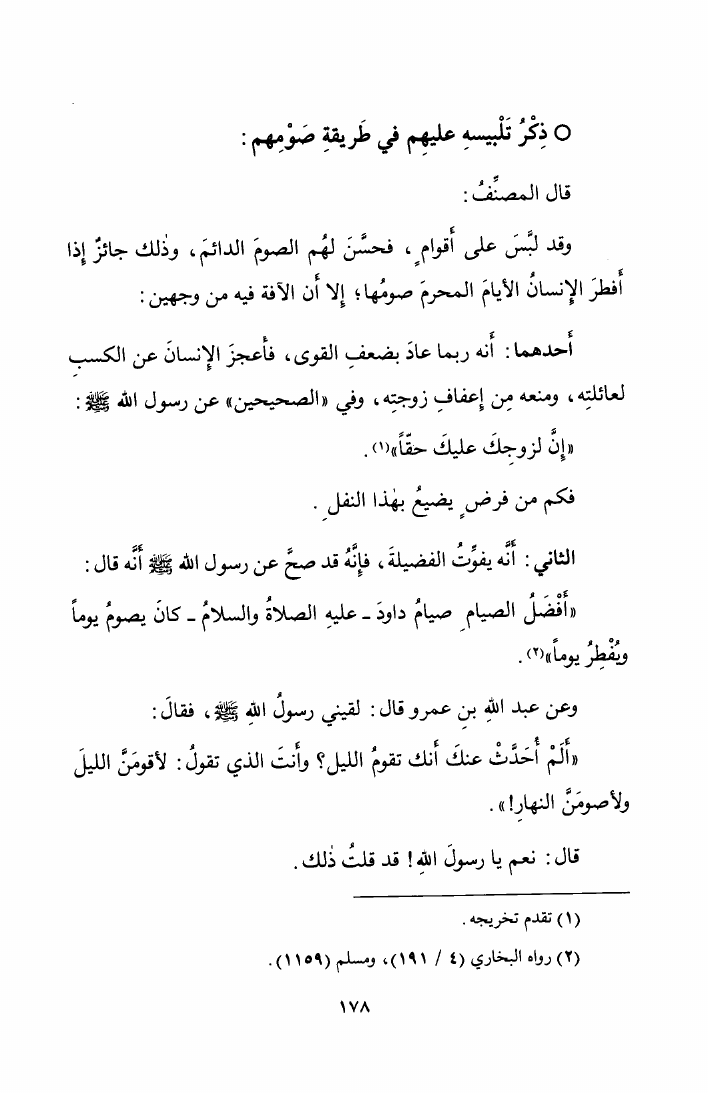 ○ ذِكْرُ تَلْبيسهِ عليهِم في طَريقةِ صَوْمِهم :
قال المصنِّفُ :
وقد لبَّسَ على أَقوامٍ ، فحسَّنَ لهُم الصومَ الدائمَ ، وذٰلك جائزٌ إِذا
أَفطرَ الإِنسانُ الأيامَ المحرمَ صومُها ؛ إِلا أَن الآفة فيه من وجهين :
أَحدهما : أَنه ربما عادَ بضعفِ القوى ، فأَعجزَ الإِنسانَ عن الكسبِ
لعائلتِه ، ومنعه مِن إِعفافِ زوجتِه ، وفي «الصحيحين» عن رسول الله ﷺ :
«إِنَّ لزوجِكَ عليكَ حقّاً»(١) .
فكم من فرضٍ يضيعُ بهٰذا النفلِ .
الثاني : أَنَّه يفوِّتُ الفضيلةَ ، فإِنَّهُ قد صحَّ عن رسول الله ﷺ أَنَّه قال :
«أَفْضَلُ الصيامِ صيامُ داودَ ـ عليهِ الصلاةُ والسلامُ ـ كانَ يصومُ يوماً
ويُفْطِرُ يوماً»(٢) .
وعن عبد اللهِ بنِ عمرو قال : لقيني رسولُ اللهِ ﷺ ، فقالَ :
«أَلَمْ أُحَدَّثْ عنكَ أَنك تقومُ الليل؟ وأَنتَ الذي تقولُ : لأقومَنَّ الليلَ
ولأصومَنَّ النهارِ!» .
قال : نعم يا رسولَ اللهِ! قد قلتُ ذٰلك .
(١) تقدم تخريجه .
(٢) رواه البخاري (٤ / ١٩١) ، ومسلم (١١٥٩) .
١٧٨